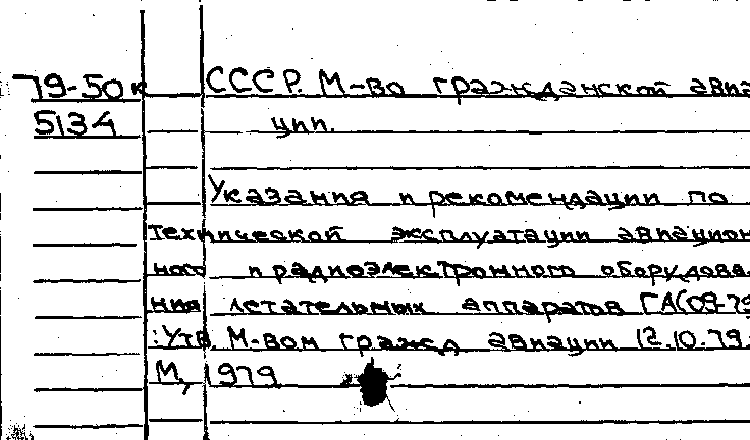 79-50к СССР. М-во гражданской авиа
5134 ции.
Указания и рекомендации по
технической эксплуатации авиацион
ного и радиоэлектронного оборудова
ния летательных аппаратов ГА(09-79
:Утв. М-вом гражд авиации 12.10.79.
М, 1979